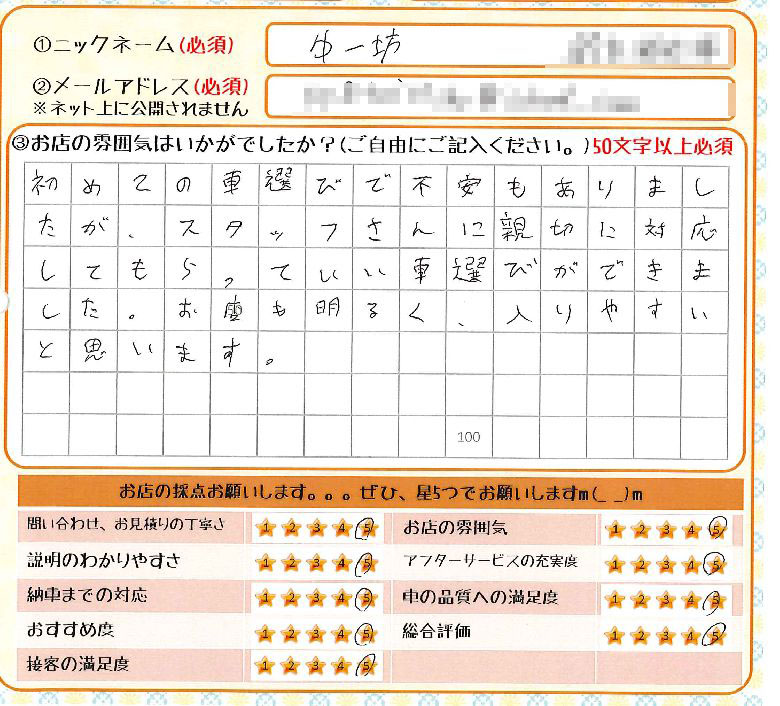 ①ニックネーム(必須) ゆー坊
②メールアドレス(必須)
※ネット上に公開されません
③お店の雰囲気はいかがでしたか？(ご自由にご記入ください。)50文字以上必須
初めての車選びで不安もありまし
たが、スタッフさんに親切に対応
してもらっていい車選びができま
した。お店も明るく、入りやすい
と思います。
100
お店の採点お願いします。。。ぜひ、星5つでお願いしますm(_ _)m
問い合わせ、お見積りの丁寧さ 1 2 3 4 5 お店の雰囲気 1 2 3 4 5
説明のわかりやすさ 1 2 3 4 5 アフターサービスの充実度 1 2 3 4 5
納車までの対応 1 2 3 4 5 車の品質への満足度 1 2 3 4 5
おすすめ度 1 2 3 4 5 総合評価 1 2 3 4 5
接客の満足度 1 2 3 4 5